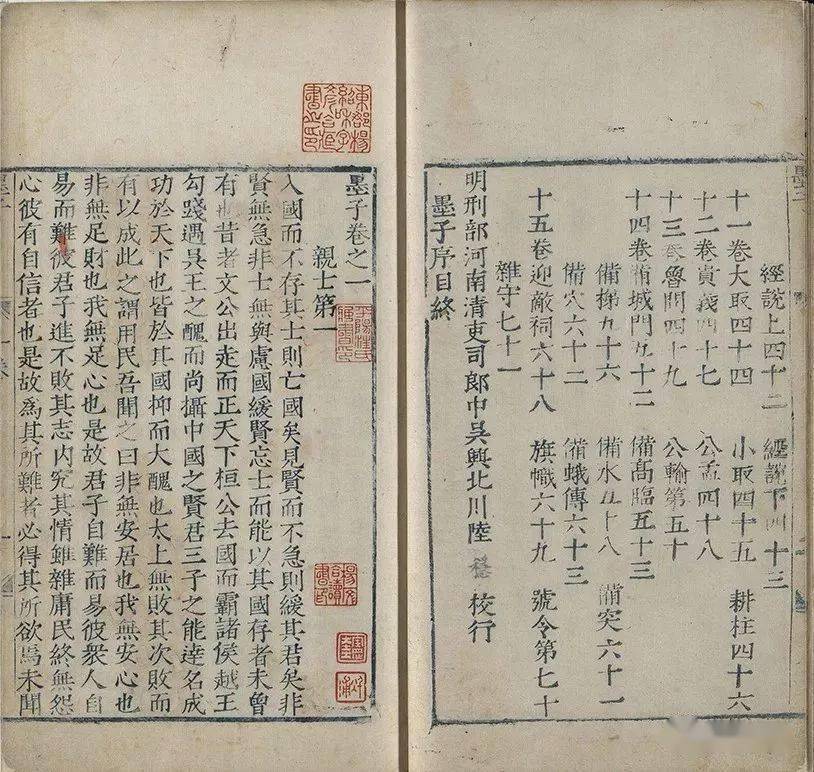 經說上四十二 經說下四十三
十一卷大取四十四 小取四十五 耕柱四十六
十二卷貴義四十七 公孟四十八
十三卷魯問四十九 公輸第五十
十四卷備城門五十二 備高臨五十三
備梯五十六 備水五十八 備突六十一
備穴六十二 備蛾傳六十三
十五卷迎敵祠六十八 旗幟六十九 號令第七十
雜守七十一
明刑部河南清吏司郎中吳興北川陸 穩 校行
墨子序目終
墨子卷之一
親士第一
入國而不存其士則亡國矣見賢而不急則緩其君矣非
賢無急非士無與慮國緩賢忘士而能以其國存者未曾
有也昔者文公出走而正天下桓公去國而霸諸侯越王
勾踐遇吳王之醜而尚攝中國之賢君三子之能達名成
功於天下也皆於其國抑而大醜也太上無敗其次敗而
有以成此之謂用民吾聞之曰非無安居也我無安心也
非無足財也我無足心也是故君子自難而易彼衆人自
易而難彼君子進不敗其志内究其情雖雜庸民終無怨
心彼有自信者也是故為其所難者必得其所欲焉未聞
墨子